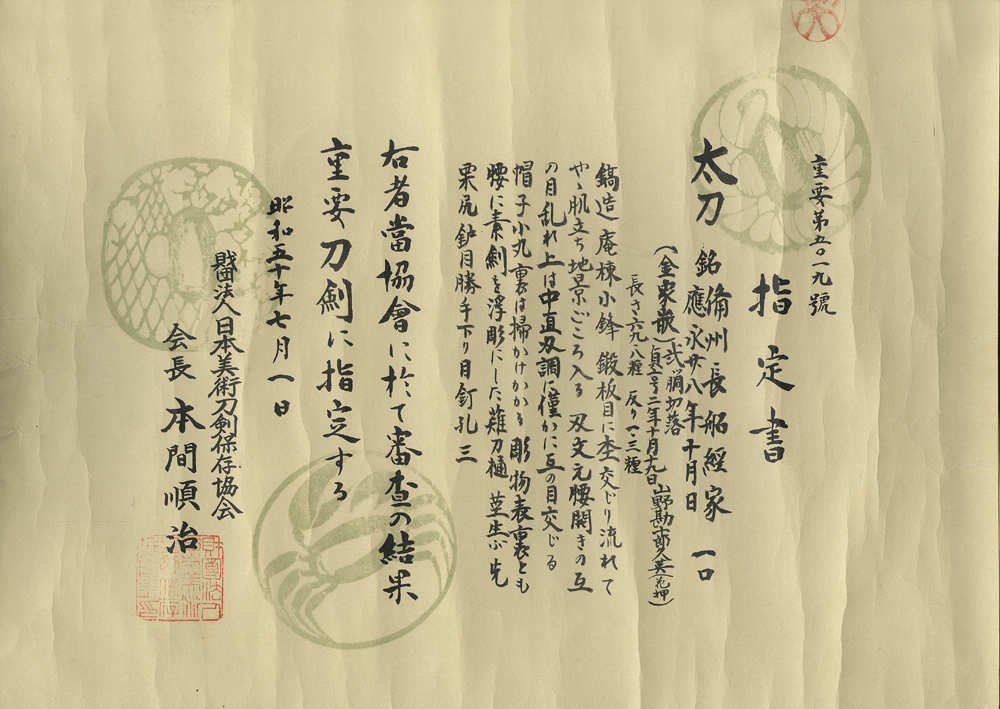 重要第五〇一九號
指定書
太刀 銘 備州長船經家 一口
應永廿八年十月日
(金象嵌)弐ツ胴切落
貞享二年十月十九日山野勘十郎久英(花押)
長さ六九・八糎 反り一・三糎
鎬造 庵棟 小鋒 鍛板目に杢交じり流れて
やゝ肌立ち地景ごころ入る 刃文元腰開きの互
の目乱れ上は中直刃調に僅かに互の目交じる
帽子小丸裏は掃かけかかる 彫物表裏とも
腰に素剣を浮彫にした薙刀樋 茎生ぶ 先
栗尻 鈩目勝手下り 目釘孔三
右者當協會に於て審査の結果
重要刀剣に指定する
昭和五十年七月一日
財団法人日本美術刀剣保存協会
会長 本間順治